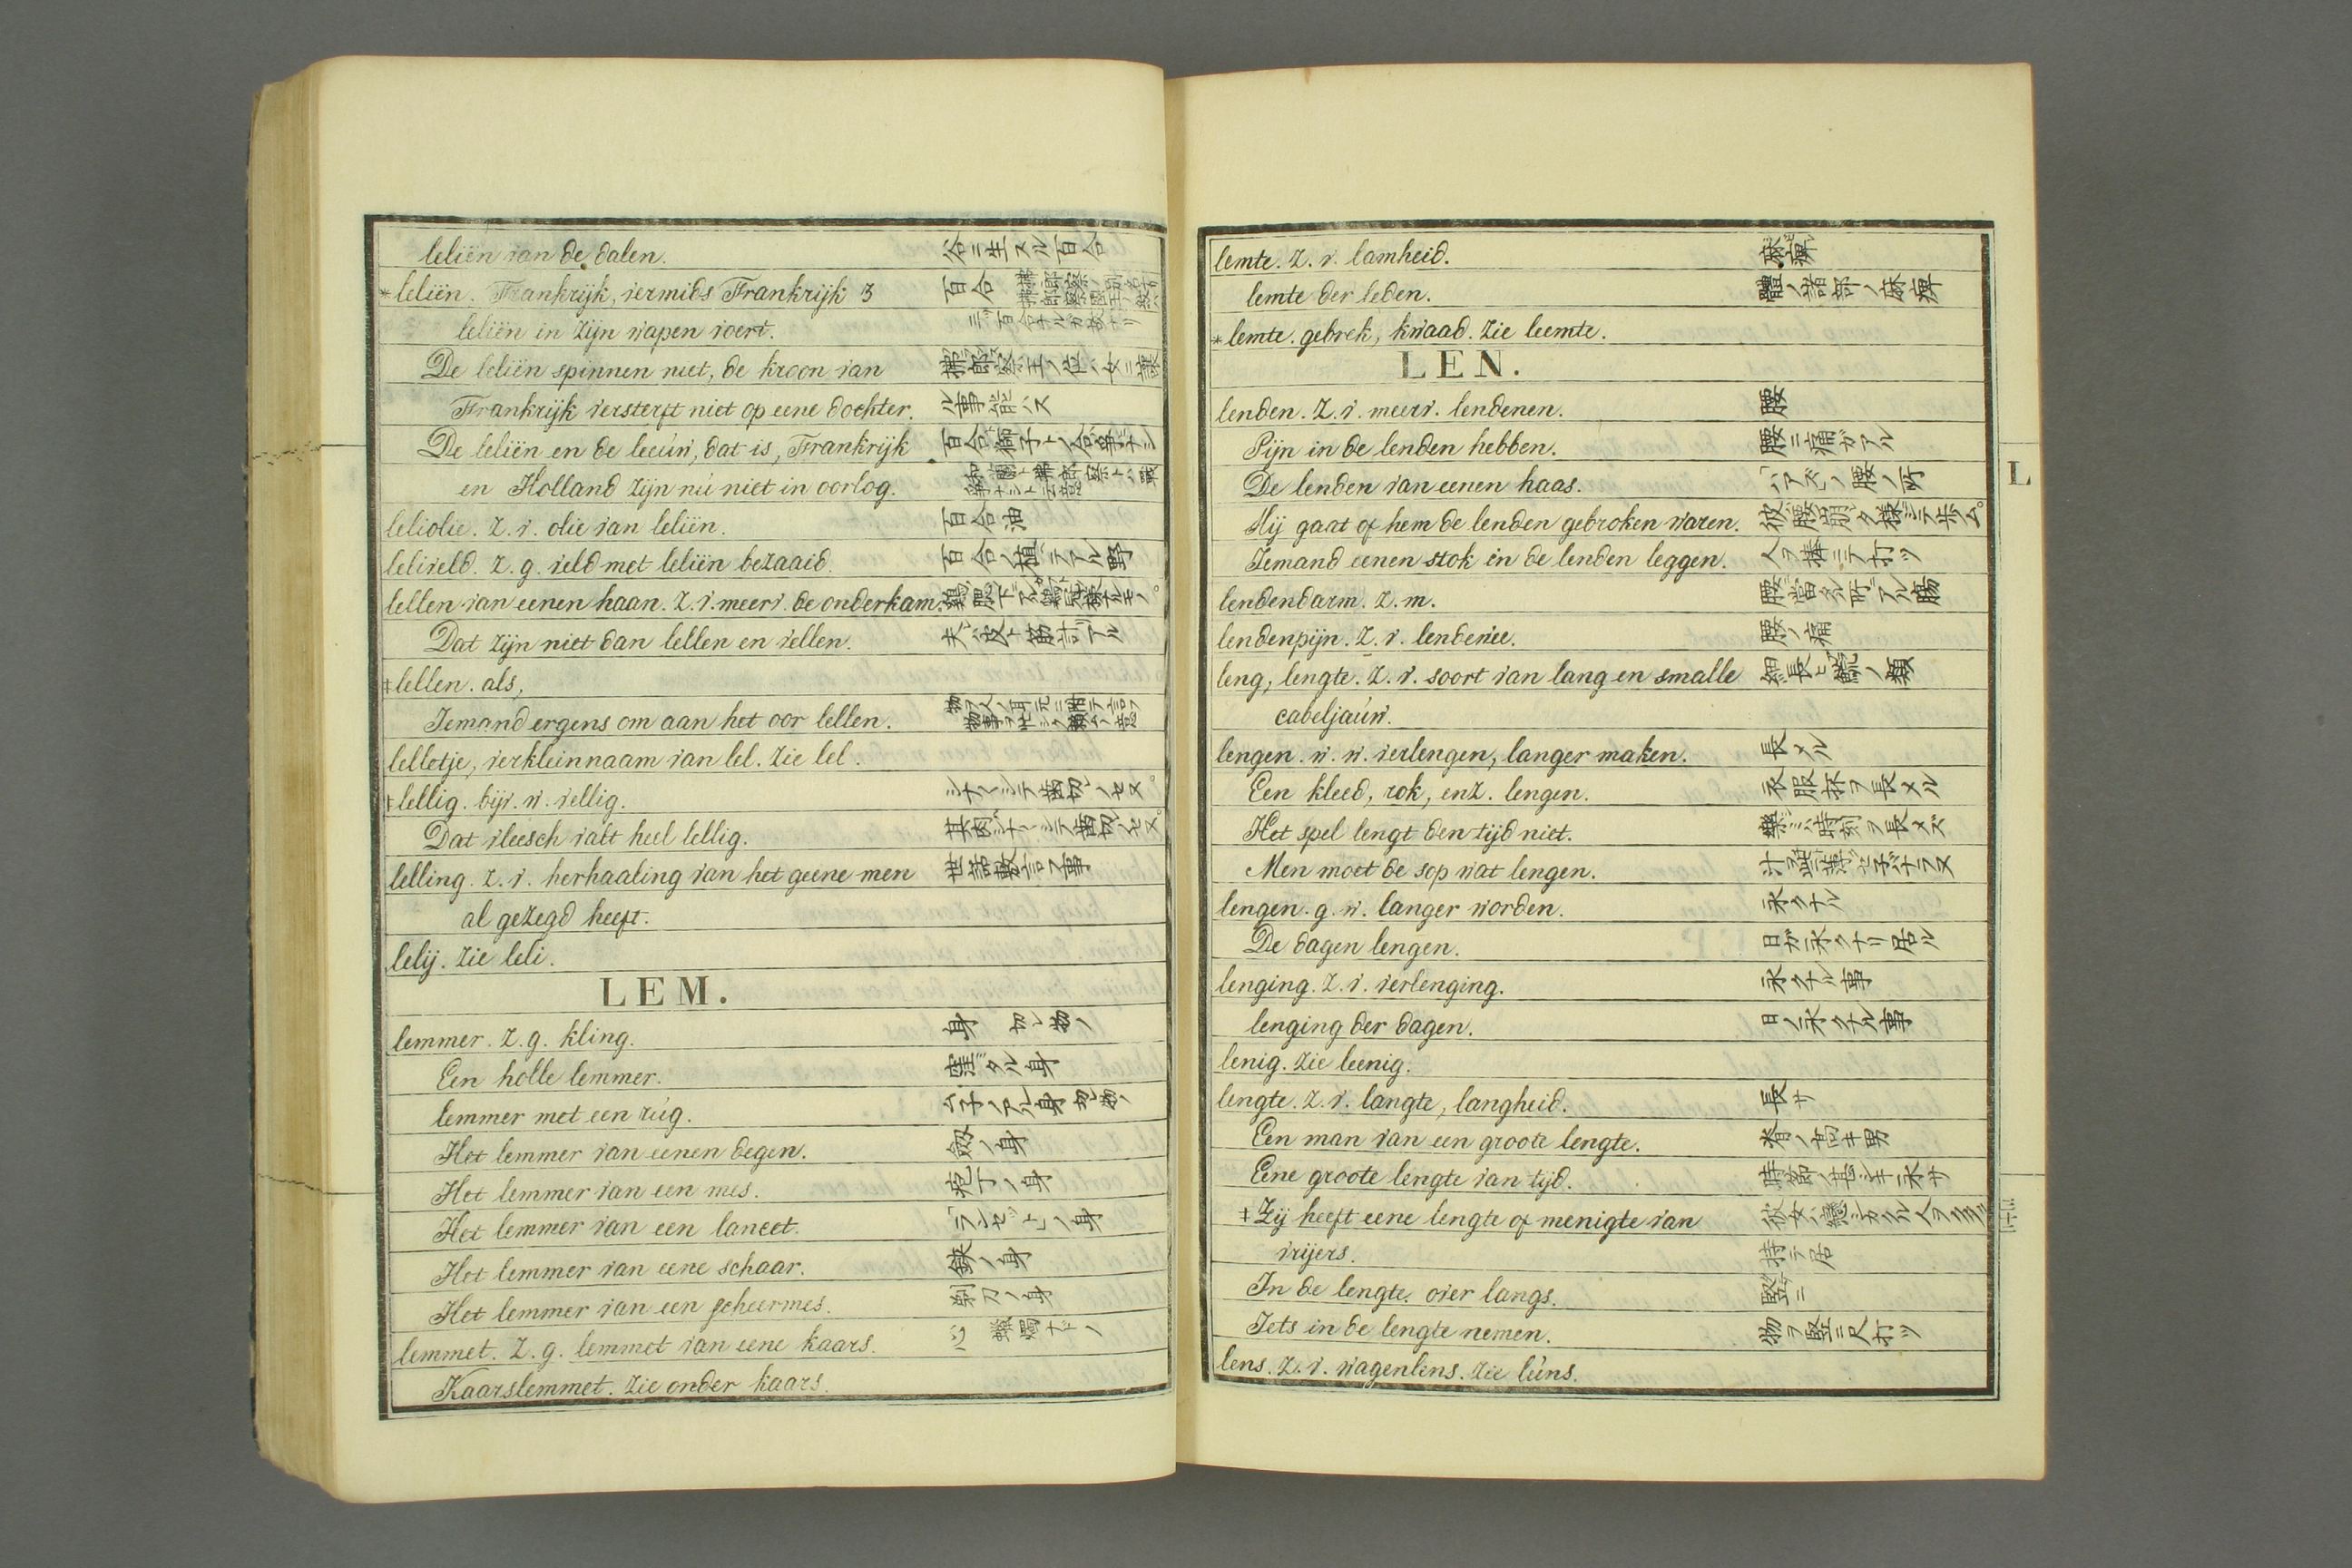 leliën van de dalen. 谷ニ生スル百合
*leliën. Frankrijk, vermids Frankrijk 3 百合
leliën in zijn wapen voert.
De leliën spinnen niet, de kroon van 拂郎察王ノ位ハ女ニ譲
Frankrijk versterft niet op eene dochter. ル事能ハス
De leliën en de leeúw, dat is, Frankrijk
en Holland zijn nú niet in oorlog.
leliolie. z. v. olie van leliën. 百合油
leliveld. z. g. veld met leliën bezaaid. 百合ノ植テアル野
lellen van eenen haan. z. v. meerv. de onderkam.
Dat zijn niet dan lellen en vellen.
‡lellen. als,
Iemand ergens om aan het oor lellen.
lelletje, verkleinnaam van lel. zie lel.
‡lellig. bijv. w. vellig.
Dat vleesch valt heel lellig.
lelling. z. v. herhaaling van het geene men
al gezegd heeft.
lelij. zie leli.
LEM.
lemmer. z. g. kling. 身 切レ物ノ
Een holle lemmer. 窪ミタル身
lemmer met een rúg.
Het lemmer van eenen degen. 劔ノ身
Het lemmer van een mes. 庖丁ノ身
Het lemmer van een lancet. ランセットノ身
Het lemmer van eene schaar. 鋏ノ身
Het lemmer van een scheermes. 剃刀ノ身
lemmet. z. g. lemmet van eene kaars. 心 蠟燭ナドノ
Kaarslemmet. zie onder kaars.
lemte. z. v. lamheid. 麻痺
lemte der leden. 體ノ諸部ノ麻痺
*lemte. gebrek, kwaad. zie leemte.
LEN.
lenden. z. v. meerv. lendenen. 腰
Pijn in de lenden hebben. 腰ニ痛ガアル
De lenden van eenen haas. ハアズノ腰ノ所
Hij gaat of hem de lenden gebroken waren.
Iemand eenen stok in de lenden leggen. 人ヲ棒ニテ打ツ
lendendarm. z. m.
lendenpijn. z. v. lendenwee. 腰ノ痛
leng, lengte. z. v. soort van lang en smalle
cabeljaúw.
lengen. w. w. verlengen, langer maken. 長メル
Een kleed, rok, enz. lengen. 衣服抔ヲ長メル
Het spel lengt den tijd niet. 樂ミハ時刻ヲ長メズ
Men moet de sop wat lengen.
lengen. g. w. langer worden. 永クナル
De dagen lengen. 日ガ永クナリ居ル
lenging. z. v. verlenging. 永クナル事
lenging der dagen. 日ノ永クナル事
lenig. zie leenig.
lengte. z. v. langte, langheid. 長サ
Een man van een groote lengte. 脊ノ高キ男
Eene groote lengte van tijd. 時節ノ甚シキ永サ
‡Zij heeft eene lengte of menigte van
vrijers. 持テ居
In de lengte. over langs. 竪ニ
Iets in de lengte nemen. 物ヲ竪ニ尺打ツ
lens. z. v. wagenlens. zie lúns.
L